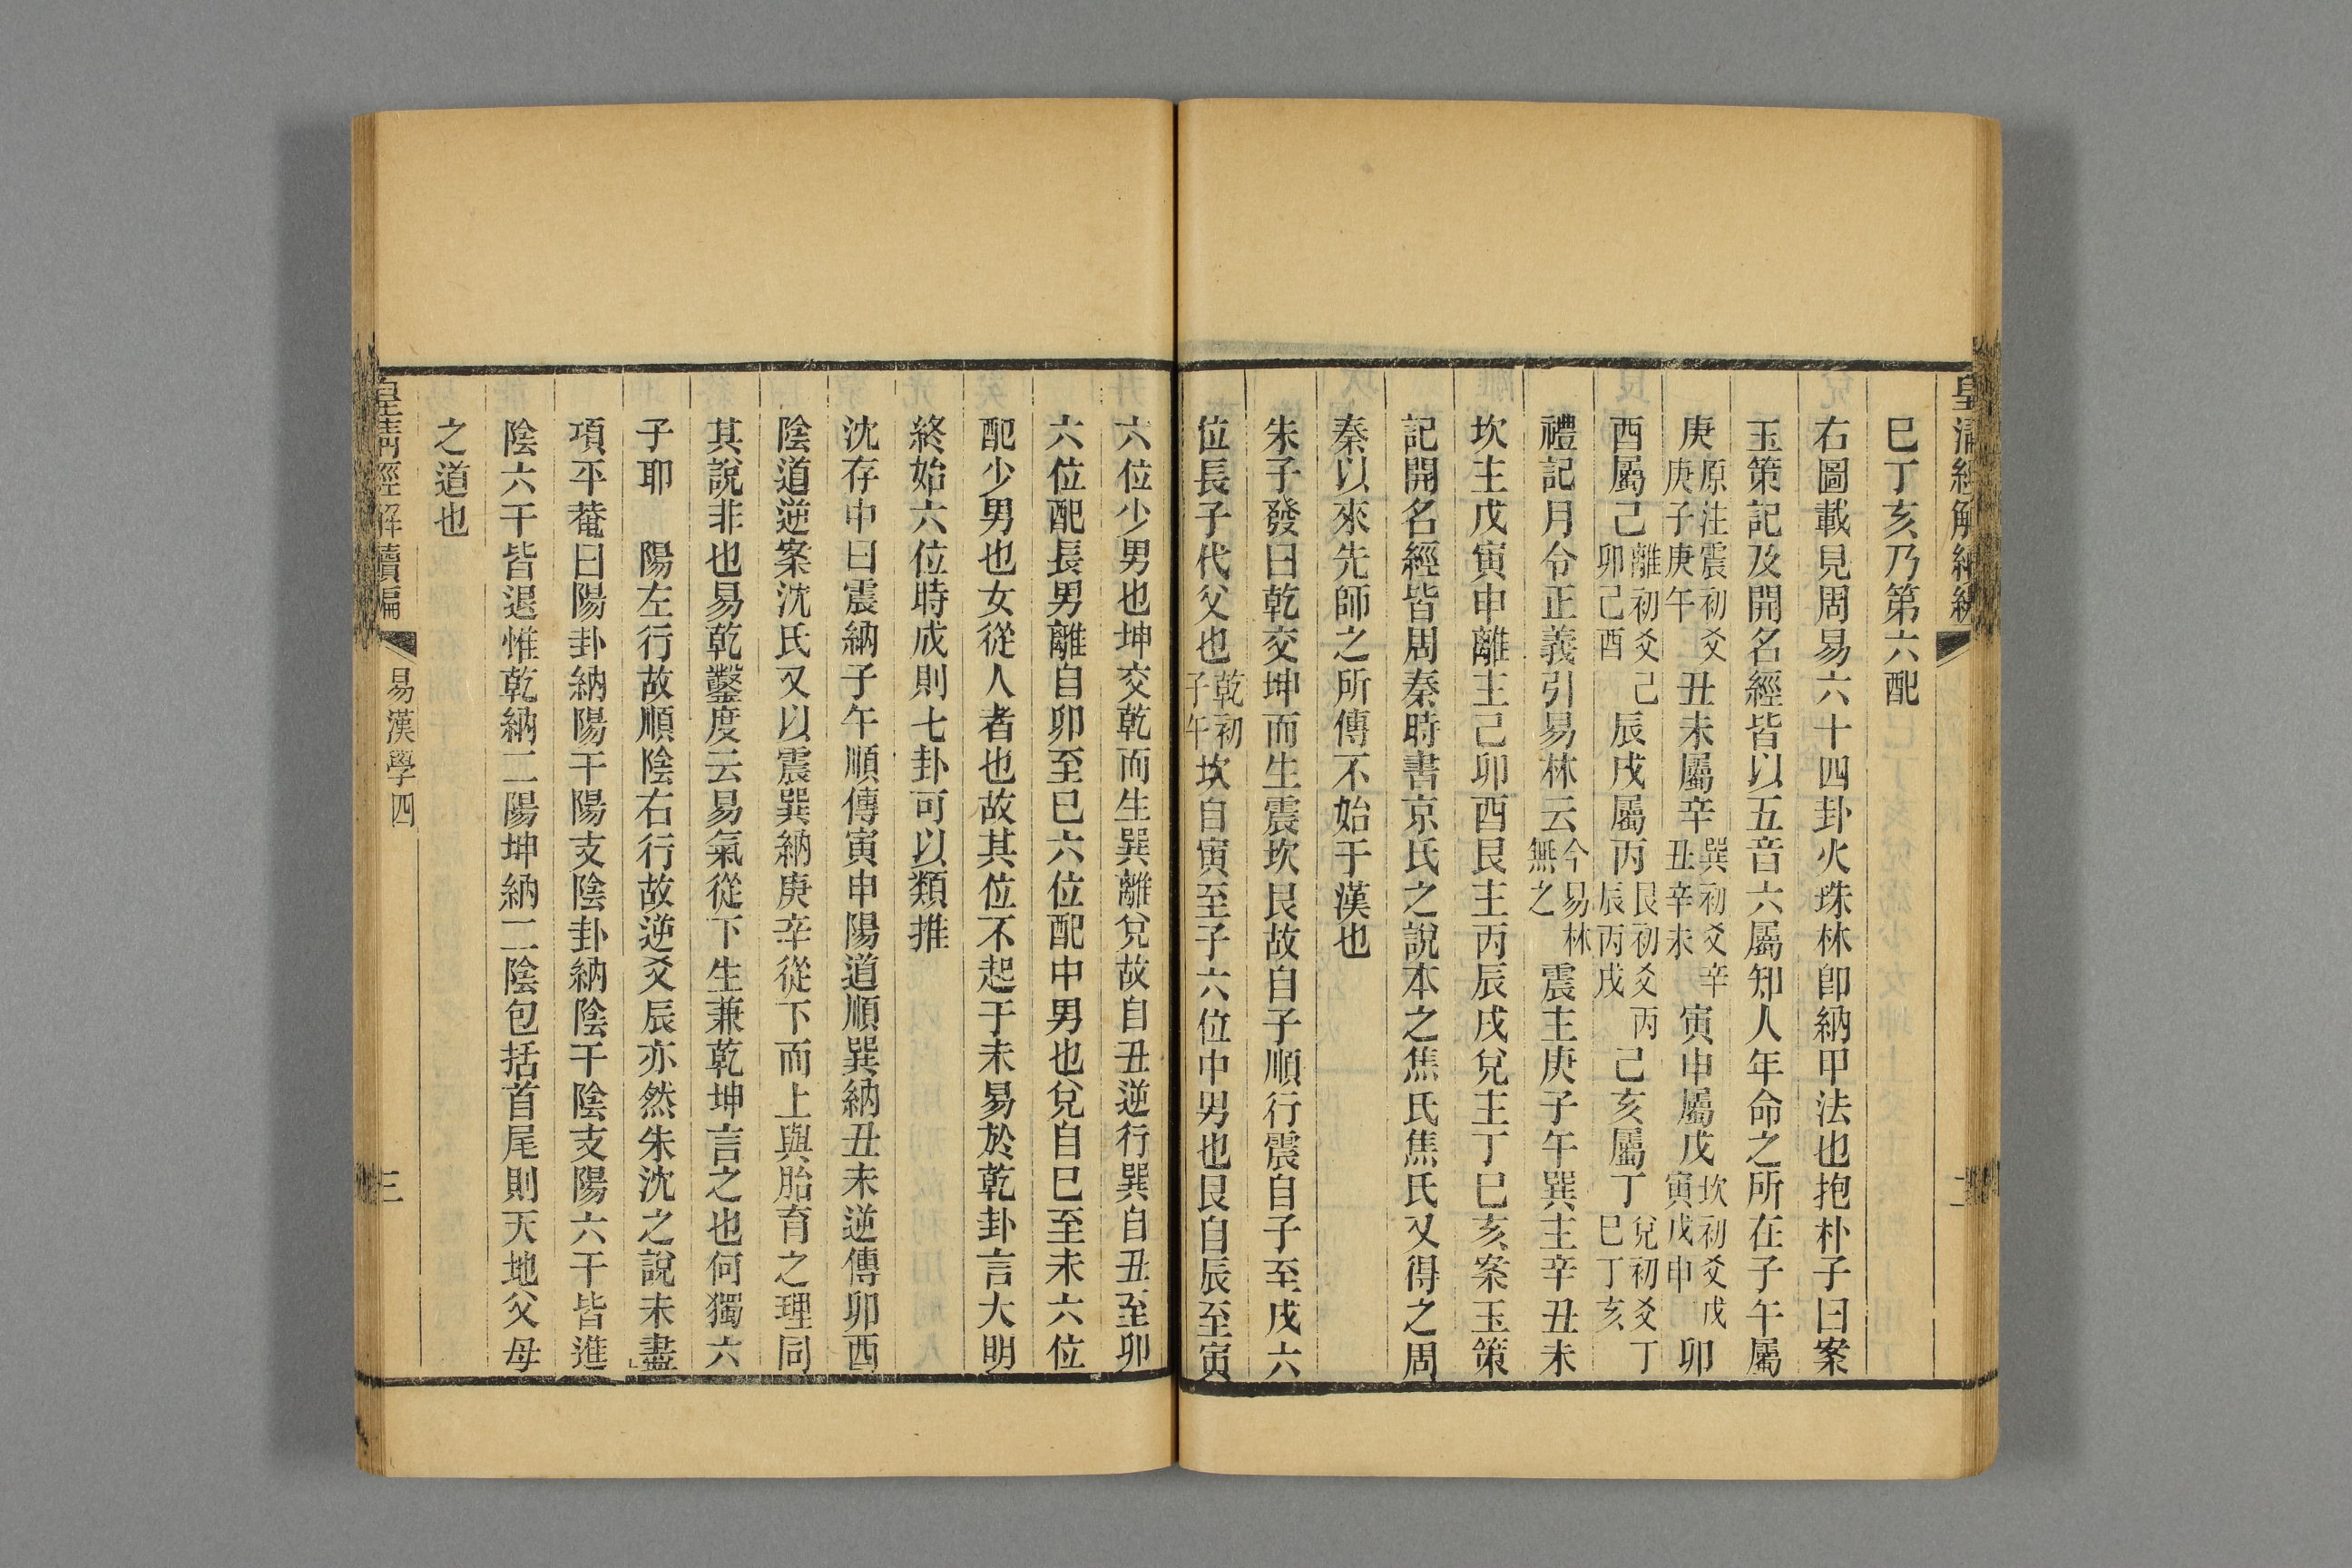 皇清經解續編
二
巳丁亥乃第六配
右圖載見周易六十四卦火珠林卽納甲法也抱朴子曰案
玉策記及開名經皆以五音六屬知人年命之所在子午屬
庚原注震初爻庚子庚午丑未屬辛巽初爻辛丑辛未寅申屬戊坎初爻戊寅戊申卯
酉屬己離初爻己卯己酉辰戌屬丙艮初爻丙辰丙戌己亥屬丁兌初爻丁巳丁亥
禮記月令正義引易林云今易林無之震主庚子午巽主辛丑未
坎主戊寅申離主己卯酉艮主丙辰戌兌主丁巳亥案玉策
記開名經皆周秦時書京氏之說本之焦氏焦氏又得之周
秦以來先師之所傳不始于漢也
朱子發曰乾交坤而生震坎艮故自子順行震自子至戌六
位長子代父也乾初子午坎自寅至子六位中男也艮自辰至寅
六位少男也坤交乾而生巽離兌故自丑逆行巽自丑至卯
六位配長男離自卯至巳六位配中男也兌自巳至未六位
配少男也女從人者也故其位不起于未易於乾卦言大明
終始六位時成則七卦可以類推
沈存中曰震納子午順傳寅申陽道順巽納丑未逆傳卯酉
陰道逆案沈氏又以震巽納庚辛從下而上與胎育之理同
其說非也易乾鑿度云易氣從下生兼乾坤言之也何獨六
子耶　陽左行故順陰右行故逆爻辰亦然朱沈之說未盡
項平菴曰陽卦納陽干陽支陰卦納陰干陰支陽六干皆進
陰六干皆退惟乾納二陽坤納二陰包括首尾則天地父母
之道也
皇清經解續編
易漢學四
三